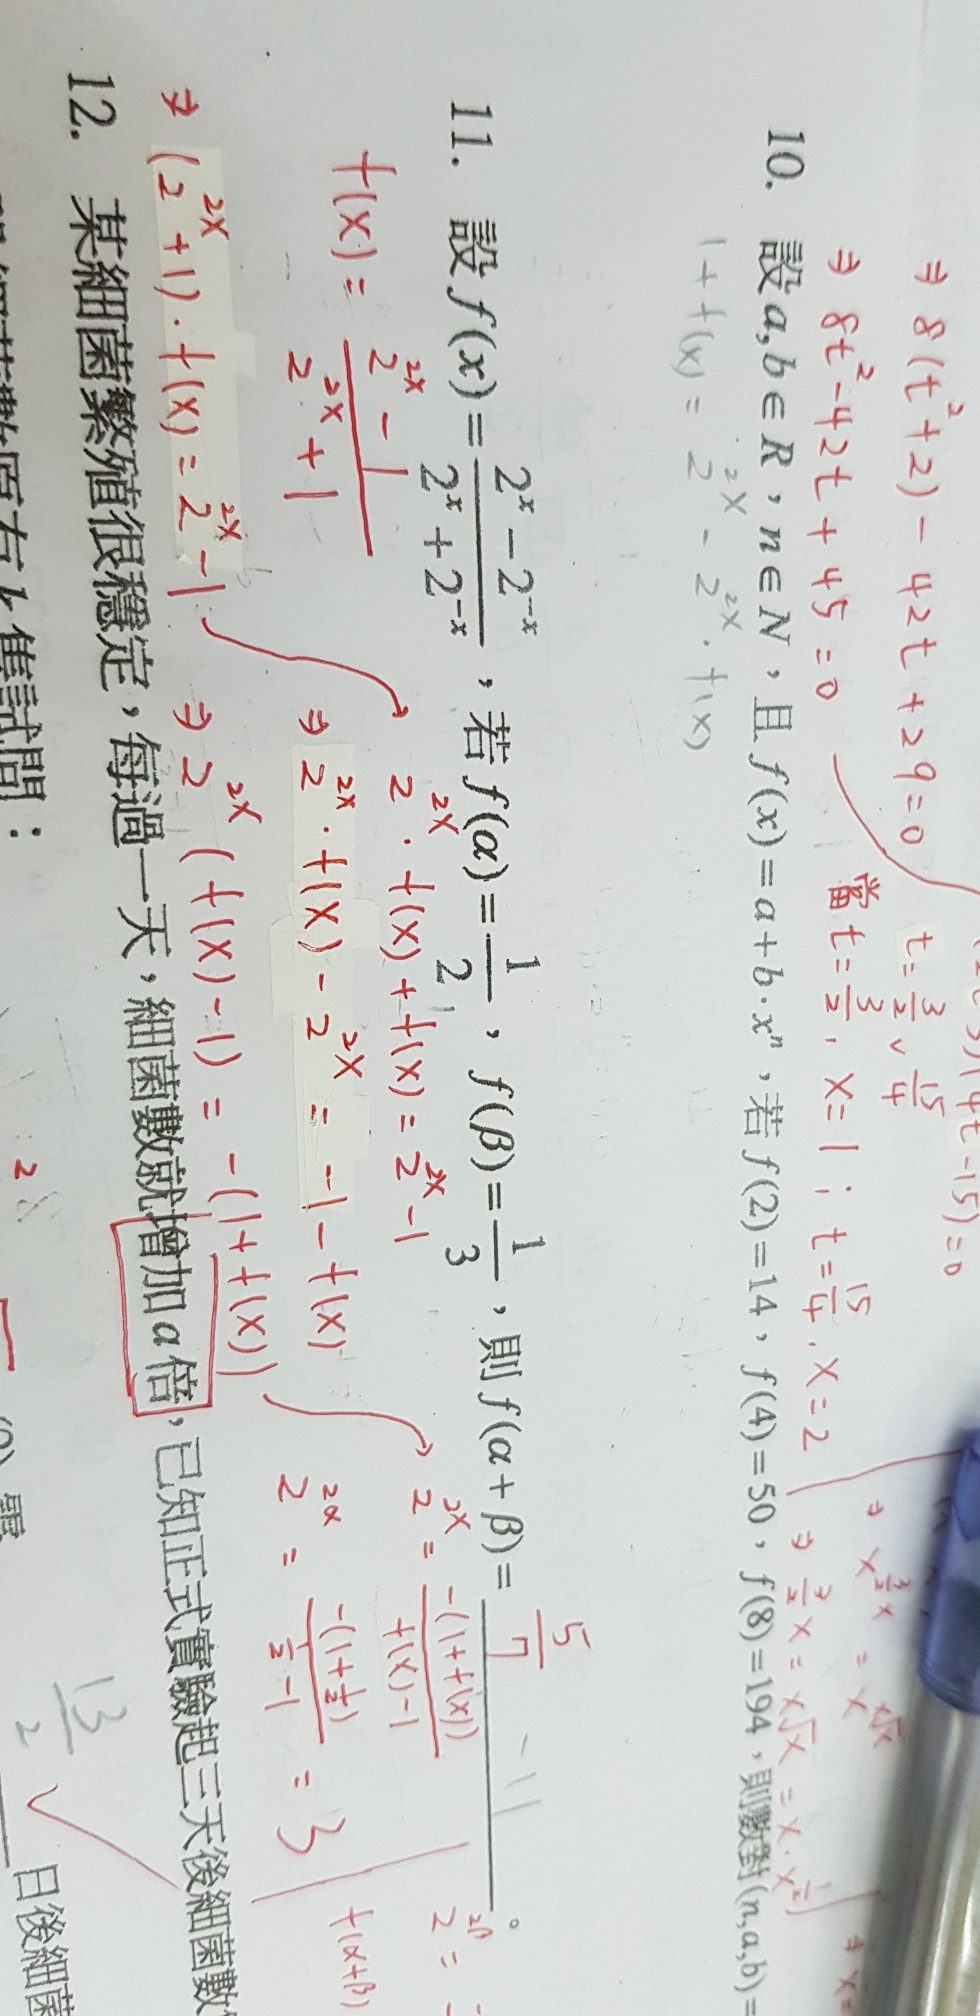 ⇒ 8(t²+2) - 42t + 29 = 0
⇒ 8t² - 42t + 45 = 0
t = 3/2 ∨ 15/4
當 t = 3/2, x = 1 ; t = 15/4, x = 2
⇒ 3/2 x = x√x = x·x^(1/2)
10. 設 a, b ∈ R，n ∈ N，且 f(x) = a + b·xⁿ，若 f(2) = 14，f(4) = 50，f(8) = 194，則數對 (n, a, b) =
1 + f(x) = 2^(2x) - 2^(2x)·f(x)
11. 設 f(x) = (2^x - 2^(-x))/(2^x + 2^(-x))，若 f(α) = 1/2，f(β) = 1/3，則 f(α + β) = 5/7 。
f(x) = (2^(2x) - 1)/(2^(2x) + 1)
⇒ (2^(2x) + 1)·f(x) = 2^(2x) - 1
2^(2x)·f(x) + f(x) = 2^(2x) - 1
⇒ 2^(2x)·f(x) - 2^(2x) = -1 - f(x)
⇒ 2^(2x) (f(x) - 1) = -(1 + f(x))
2^(2x) = -(1 + f(x))/(f(x) - 1)
2^(2α) = -(1 + 1/2)/(1/2 - 1) = 3
2^(2β) =
f(α+β)
12. 某細菌繁殖很穩定，每過一天，細菌數就增加 a 倍，已知正式實驗起三天後細菌數
13/2
日後細菌